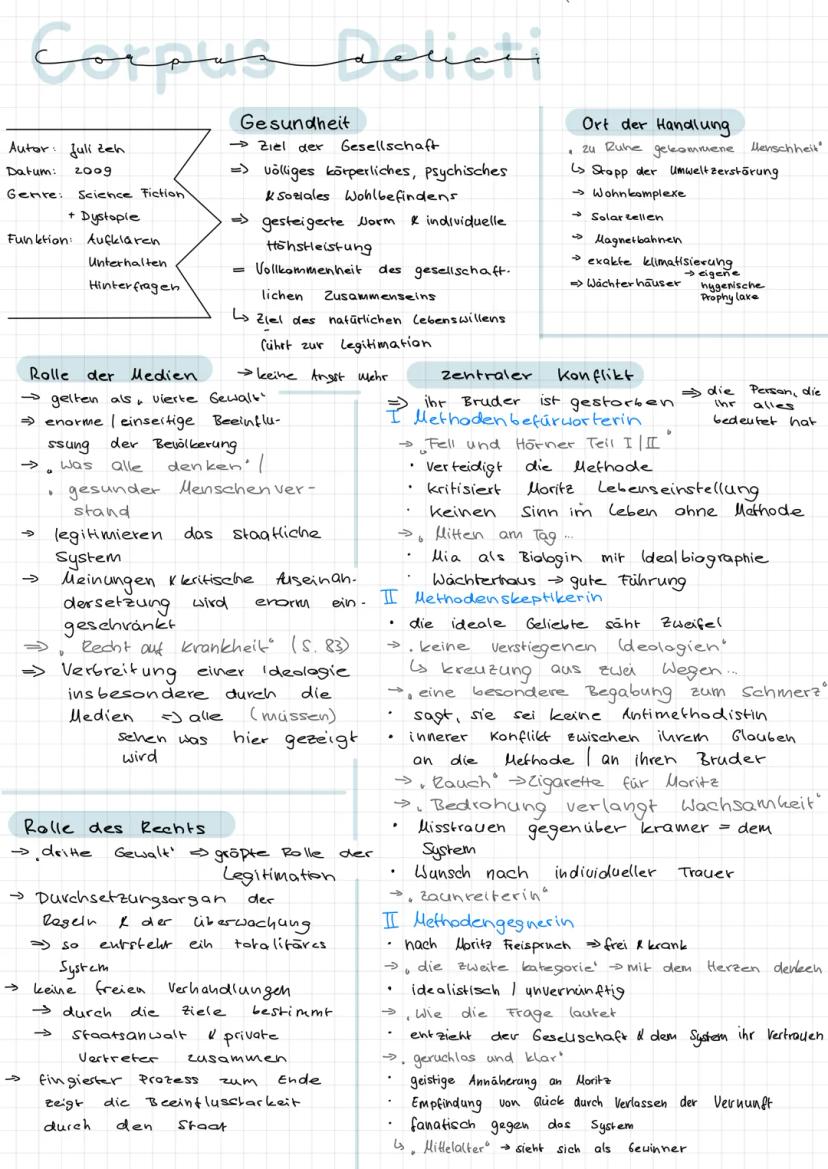 Corpus Delicti
Corpus delicti
Autor: Juli Zeh
Datum: 2009
Genre: Science Fiction
+ Dystopie
Funktion: Aufklären
Unterhalten
Hinterfragen
Gesundheit
→ Ziel der Gesellschaft
⇒ völliges körperliches, psychisches
& soziales Wohlbefindens
⇒ gesteigerte Norm & individuelle
Höhstleistung
= Vollkommenheit des gesellschaft-
lichen Zusammenseins
↳ Ziel des natürlichen Lebenswillens
führt zur Legitimation
→ keine Angst mehr
Ort der Handlung
„zu Ruhe gekommene Menschheit"
↳ Stopp der Umweltzerstörung
→ Wohnkomplexe
→ Solarzellen
→ Magnetbahnen
→ exakte Klimatisierung
⇒ Wächterhäuser → eigene
hygenische
Prophylaxe
Rolle der Medien
→ gelten als „vierte Gewalt"
⇒ enorme / einseitige Beeinflu-
ssung der Bevölkerung
→ „Was alle denken" /
„gesunder Menschenver-
stand
→ legitimieren das staatliche
System
→ Meinungen & kritische Auseinan-
dersetzung wird enorm ein-
geschränkt
⇒ „Recht auf Krankheit" (S. 83)
⇒ Verbreitung einer Ideologie
insbesondere durch die
Medien ⇒ alle (müssen)
sehen was hier gezeigt
wird
Rolle des Rechts
→ „dritte Gewalt" ⇒ größte Rolle der
Legitimation
→ Durchsetzungsorgan der
Regeln & der Überwachung
⇒ so entsteht ein totalitäres
System
→ keine freien Verhandlungen
→ durch die Ziele bestimmt
→ Staatsanwalt & private
Vertreter zusammen
→ fingierter Prozess zum Ende
zeigt die Beeinflussbarkeit
durch den Staat
zentraler Konflikt
⇒ ihr Bruder ist gestorben ⇒ die Person, die
ihr alles
bedeutet hat
I Methodenbefürworterin
→ „Fell und Hörner Teil I / II"
• verteidigt die Methode
• kritisiert Moritz Lebenseinstellung
• keinen Sinn im Leben ohne Methode
→ „Mitten am Tag...
• Mia als Biologin mit Idealbiographie
• Wächterhaus → gute Führung
II Methodenskeptikerin
• die ideale Geliebte säht Zweifel
→ „keine verstiegenen Ideologien"
↳ kreuzung aus zwei Wegen...
→ „eine besondere Begabung zum Schmerz"
• sagt, sie sei keine Antimethodistin
• innerer Konflikt zwischen ihrem Glauben
an die Methode / an ihren Bruder
→ „Rauch" → Zigarette für Moritz
→ „Bedrohung verlangt Wachsamkeit"
• Misstrauen gegenüber Kramer = dem
System
• Wunsch nach individueller Trauer
→ „Zaunreiterin"
II Methodengegnerin
• nach Moritz Freispruch ⇒ frei & krank
→ „die zweite Kategorie" → mit dem Herzen denken
• idealistisch / unvernünftig
→ „Wie die Frage lautet
• entzieht der Gesellschaft & dem System ihr Vertrauen
→ „geruchlos und klar"
• geistige Annäherung an Moritz
• Empfindung von Glück durch Verlassen der Vernunft
• fanatisch gegen das System
↳ „Mittelalter" → sieht sich als Gewinner